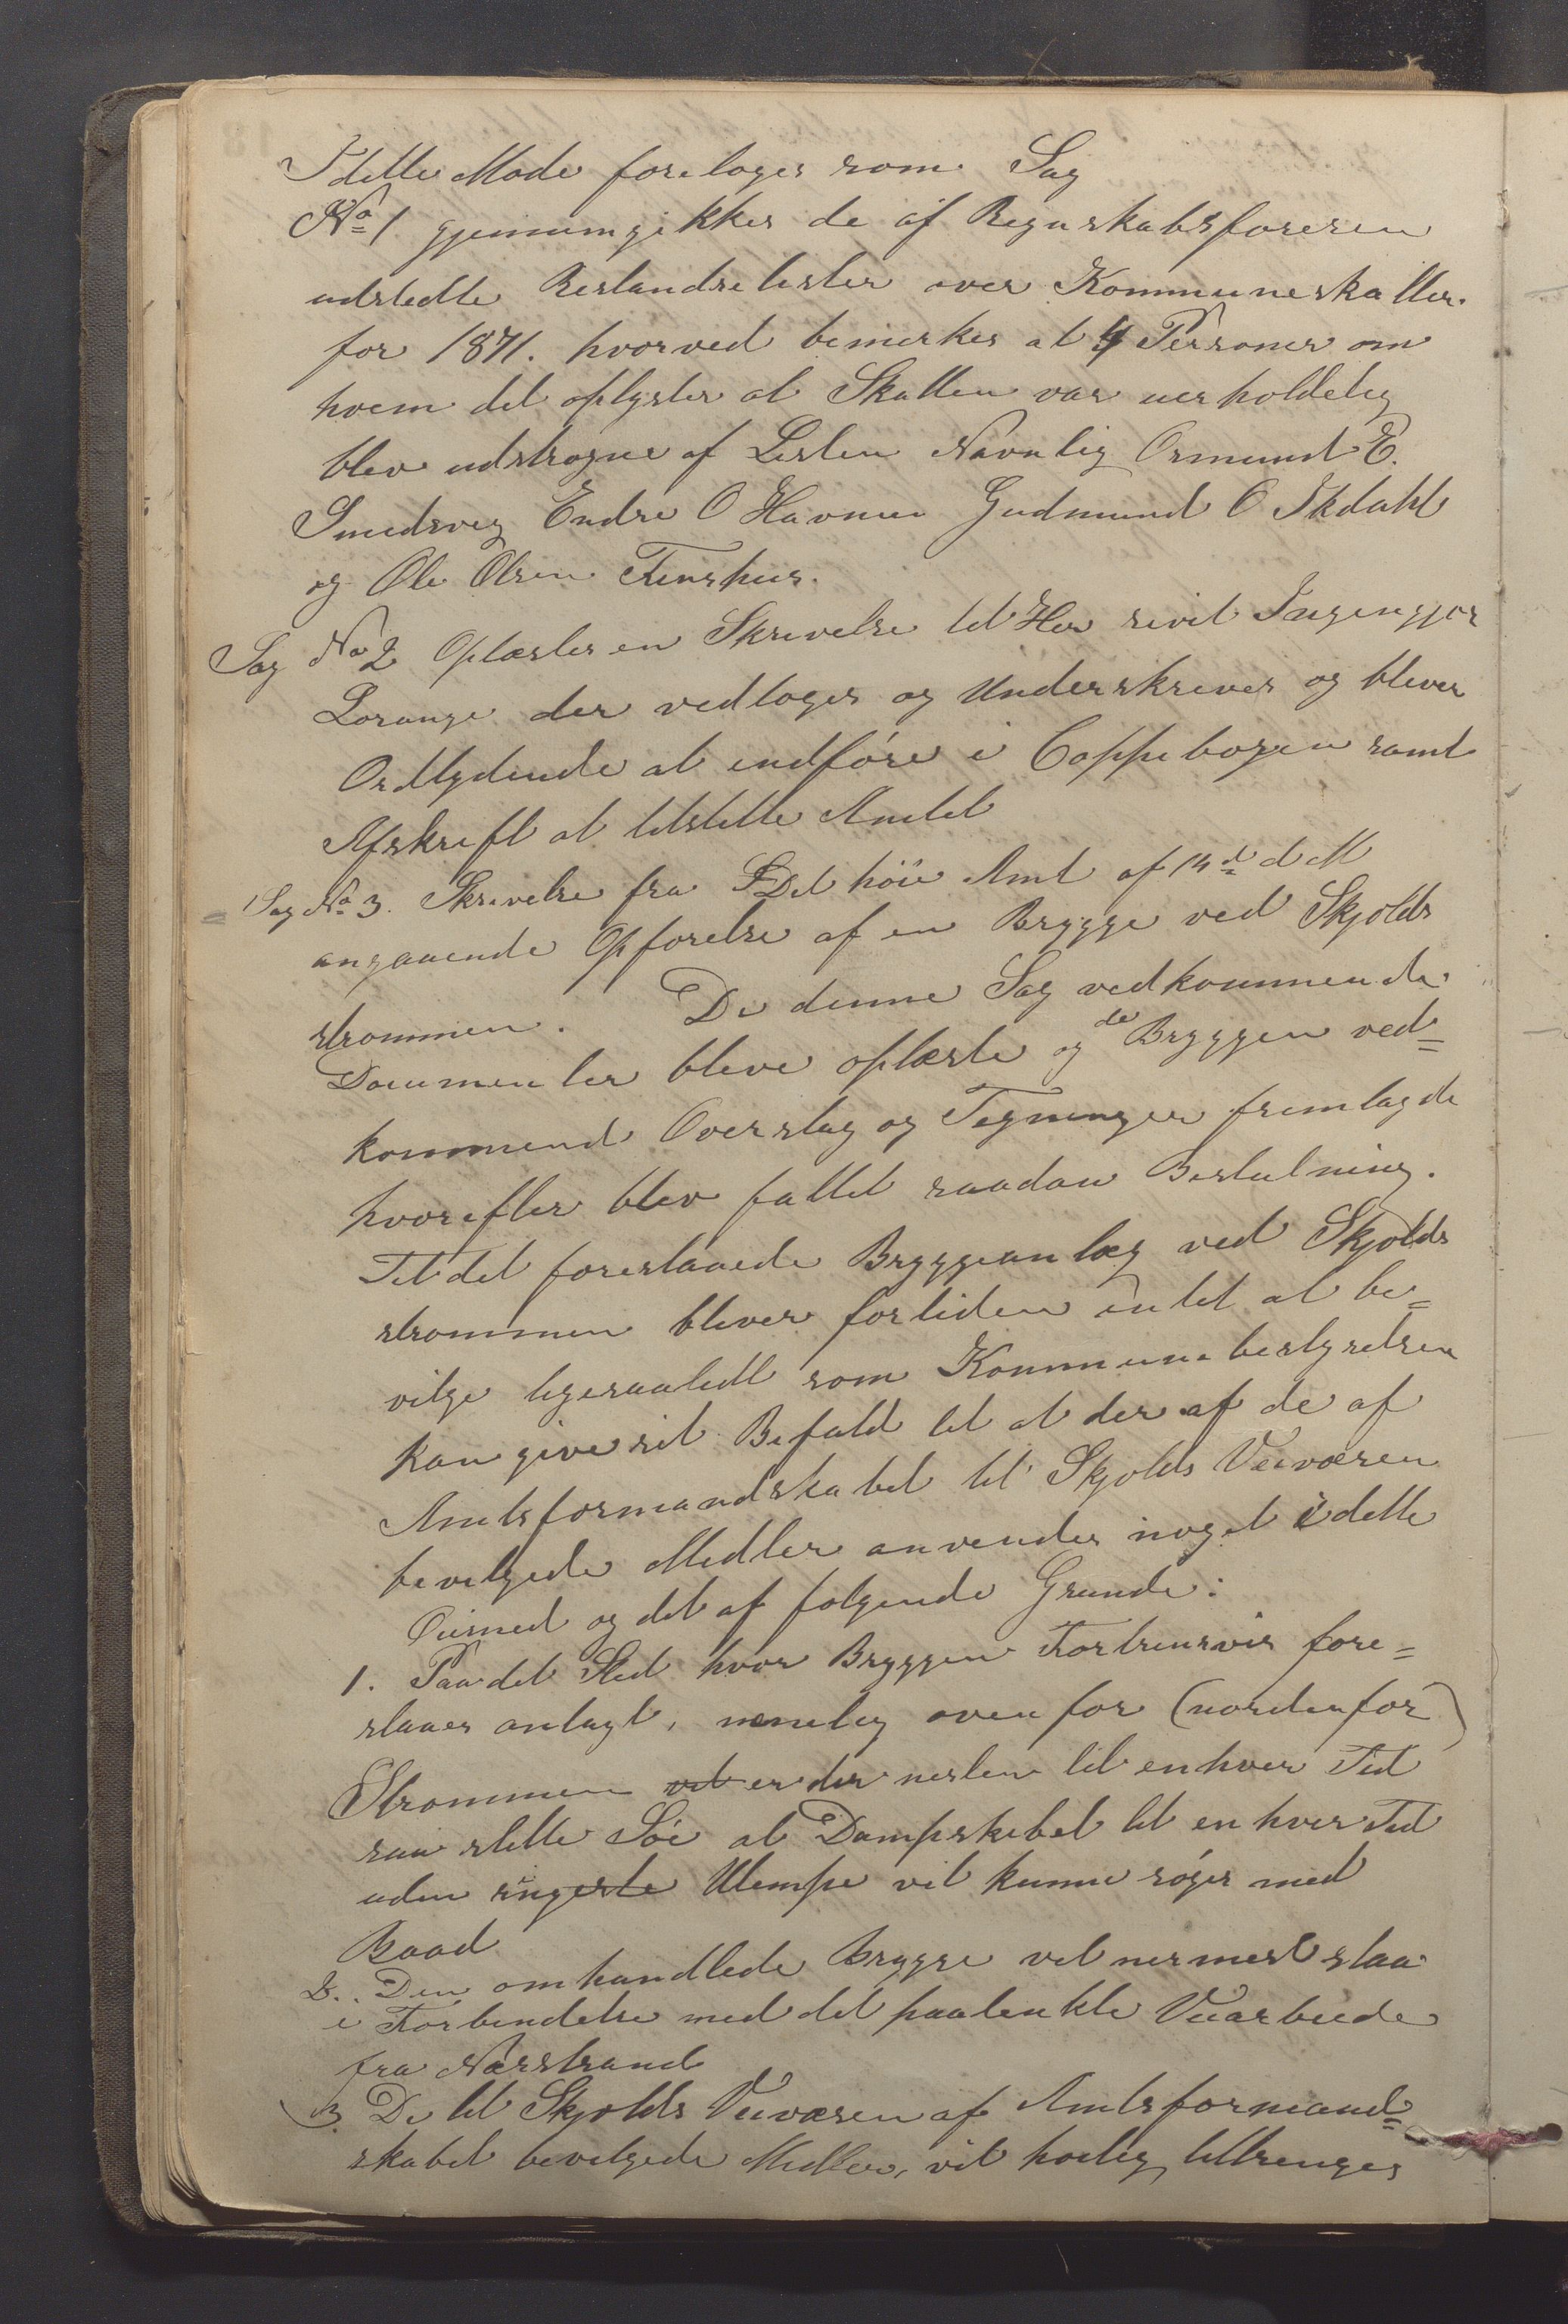 I dette Møde foretoges som Sag
No 1 gjennemgikkes de af Regnskabsføreren
udstedte Restandselister over Kommuneskatter
for 1871. hvorved bemerkes at 4 Personer om
hvem det oplystes at Skatten var uerholdelig
blev udstrøgne af Listen Navnlig Ormund E.
Smedsvig Endre O Havnen Gudmund O Ikdahl
og Ole Olsen Tinshus.
Sag No 2 Oplæstes en Skrivelse til Her sivil Ingengjør
Lorange der vedtoges og Underskrives og bliver
Ordlydende at indføre i Coppibogen samt
Afskrift at tilstille Amtet
Sag No 3. Skrivelse fra Det höie Amt af 14de d M
angaaende Opførelse af en Brygge ved Skjolds
strømmen. De denne Sag vedkommende
Documenter bleve oplæste og de Bryggen ved=
kommend Overslag og Tegninger fremlagde
hvorefter blev fattet saadan Beslutning.
Til det foreslaaede Bryggeanlæg ved Skjolds
strømmen bliver fortiden intet at be=
vilge ligesaalidt som Kommunebestyrelsen
kan give sit Bifald til at der af de af
Amtsformandskabet til Skjolds Veivæsen
bevilgede Midler anvendes noget i dette
Øiemed og det af følgende Grunde:
1. Paa det Sted hvor Bryggen Fortrinsvis fore=
slaaes anlagt, nemlig ovenfor (nordenfor)
Strømmen vil er der nesten til enhver Tid
saa stille Söe at Dampskibet til en hver Tid
uden ringeste Ulempe vil kunne søges med
Baad
2. Den omhandlede Brygge vil nermest staa
i Forbindelse med det paatenkte Veiarbeide
fra Nærstrand
3. De til Skjolds Veivæsen af Amtsformand=
skabet bevilgede Midler, vil høilig tiltrenges